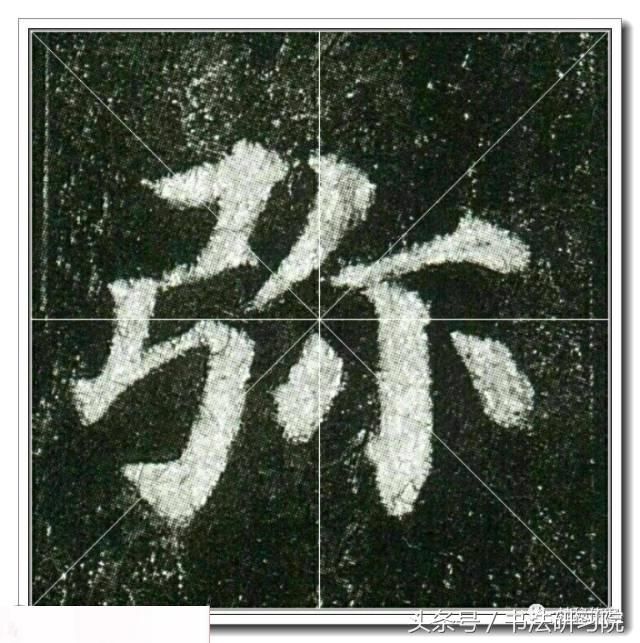 弥
头条号 / 书法研习院